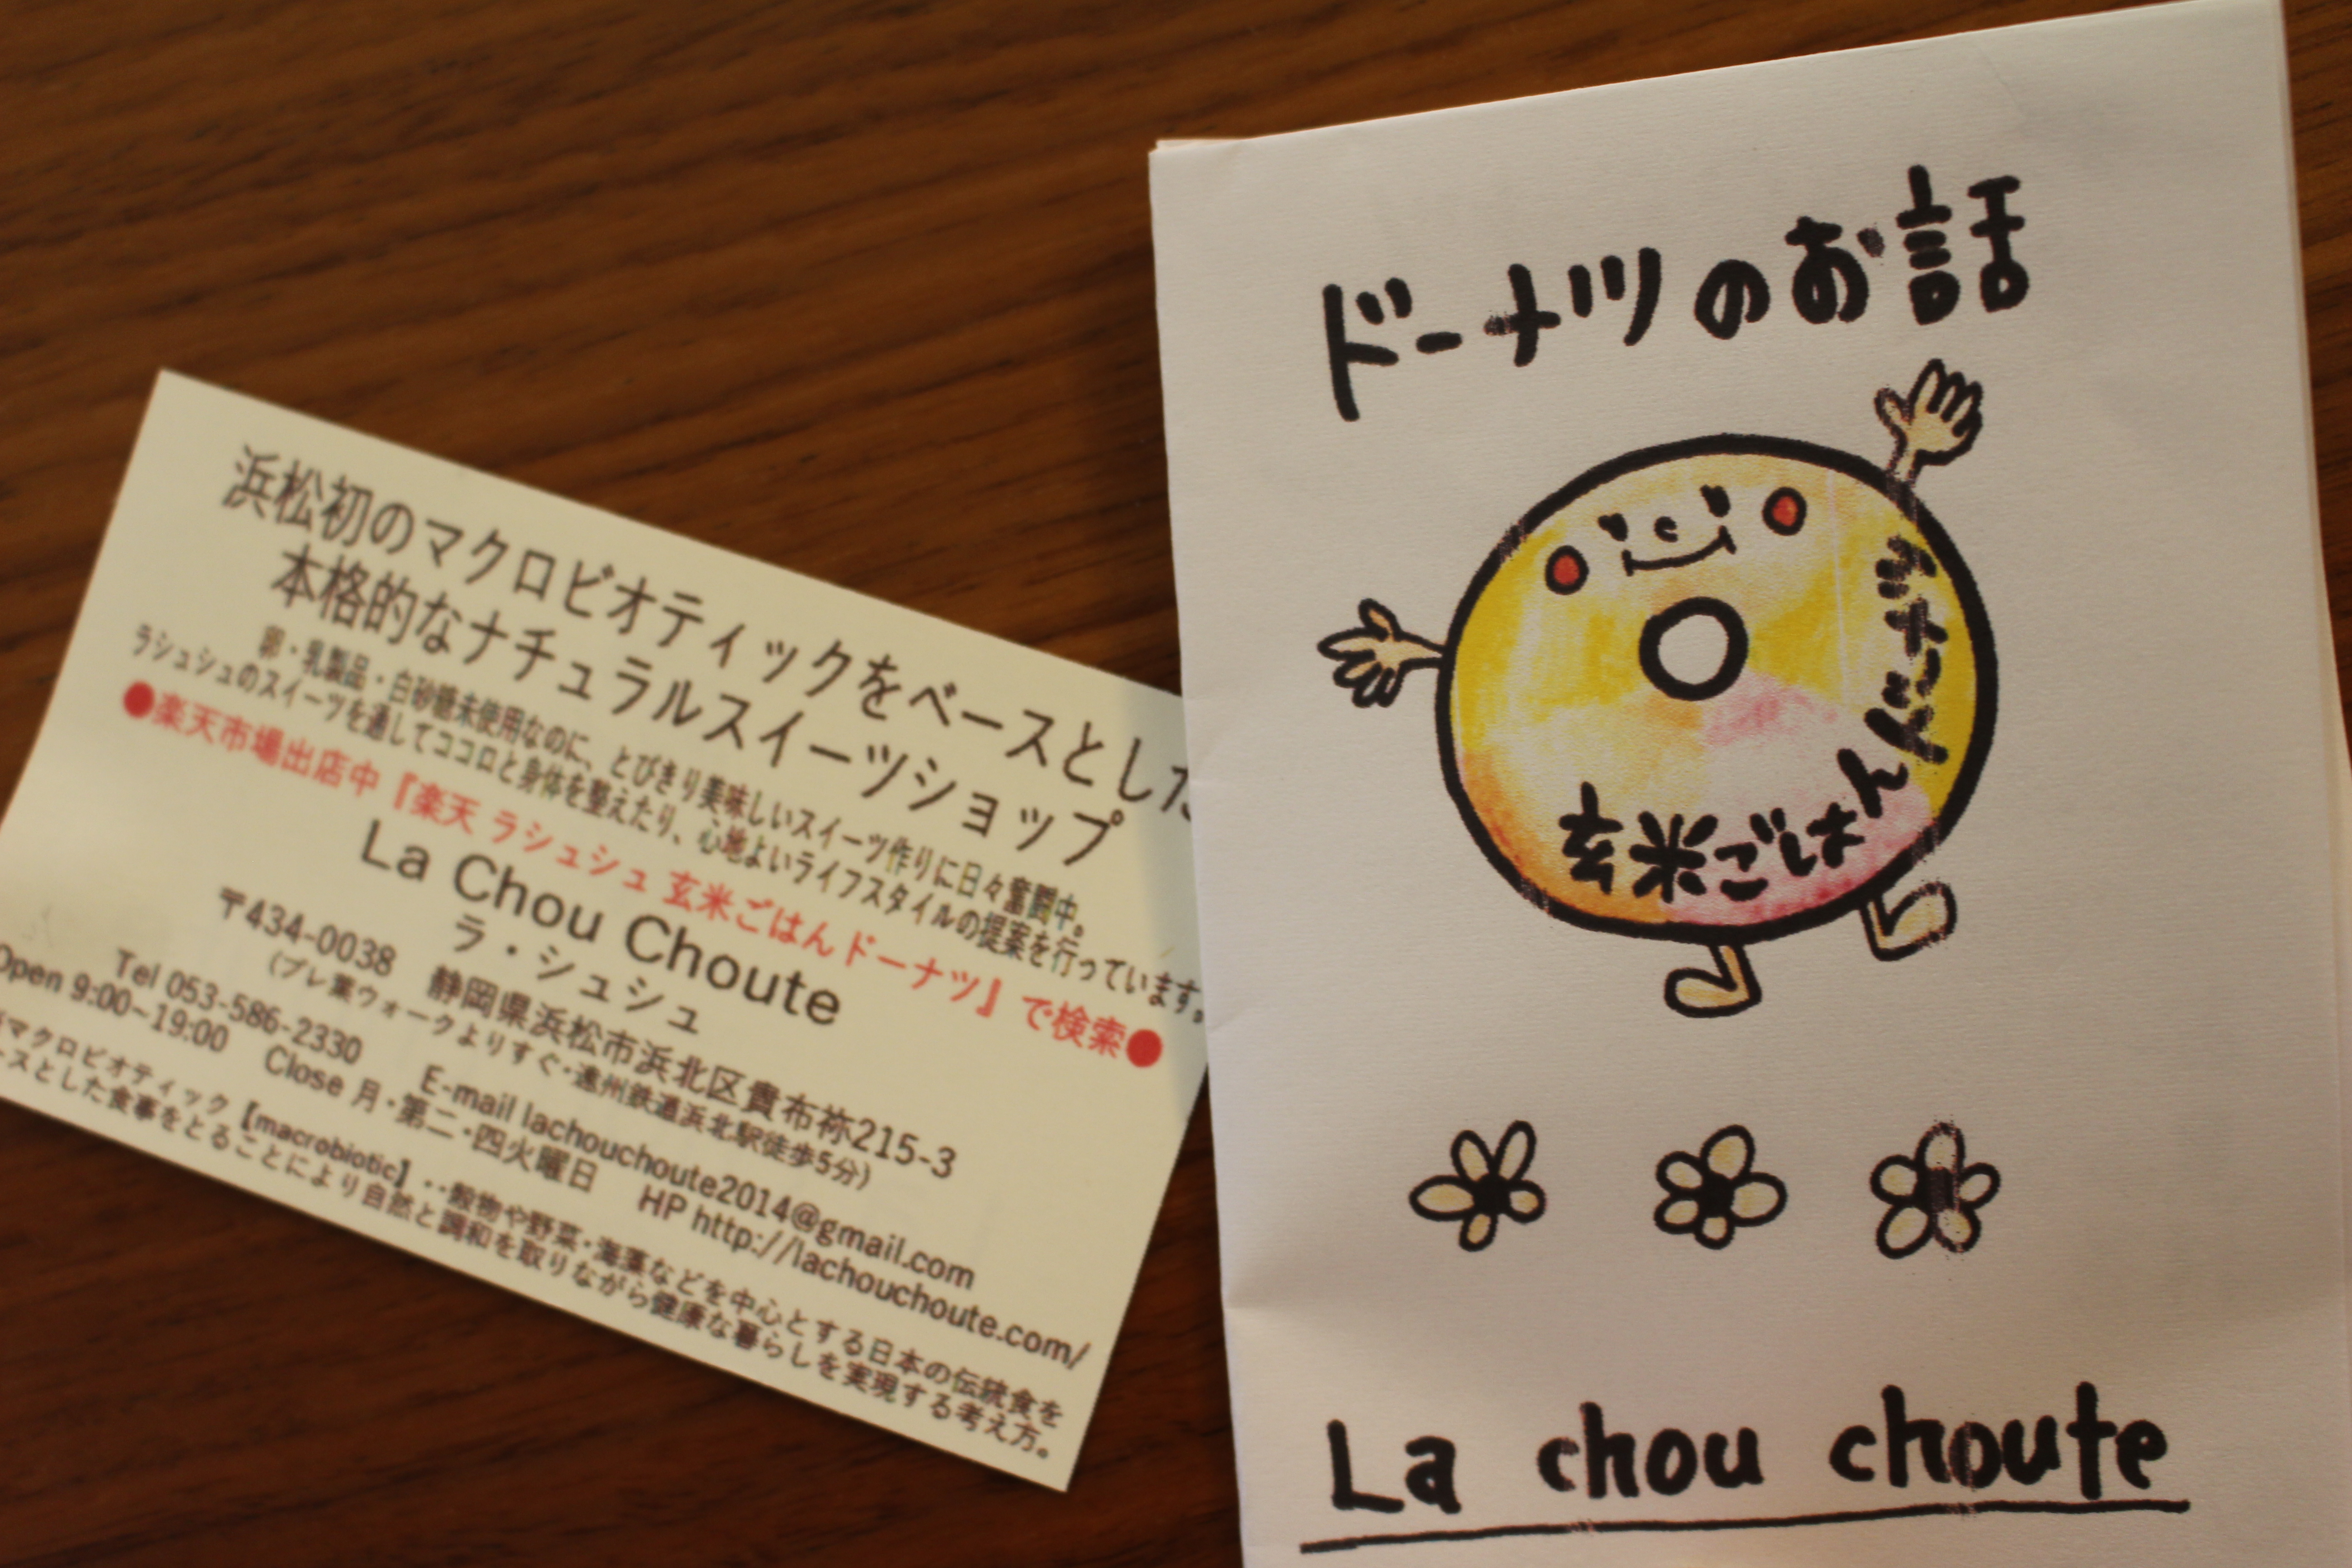 浜松初のマクロビオティックをベースとした
本格的なナチュラルスイーツショップ
卵・乳製品・白砂糖未使用なのに、とびきり美味しいスイーツ作りに日々奮闘中。
ラシュシュのスイーツを通してココロと身体を整えたり、心地よいライフスタイルの提案を行っています。
●楽天市場出店中『楽天 ラシュシュ 玄米ごはんドーナツ』で検索●
La Chou Choute
ラ・シュシュ
〒434-0038 静岡県浜松市浜北区貴布祢215-3
(プレ葉ウォークよりすぐ・遠州鉄道浜北駅徒歩5分)
Tel 053-586-2330 E-mail lachouchoute2014@gmail.com
Open 9:00~19:00 Close 月・第二・四火曜日 HP http://lachouchoute.com/
マクロビオティック【macrobiotic】‥穀物や野菜・海藻などを中心とする日本の伝統食を
ースとした食事をとることにより自然と調和を取りながら健康な暮らしを実現する考え方。
ドーナツのお話
玄米ごはんドーナツ
La chou choute